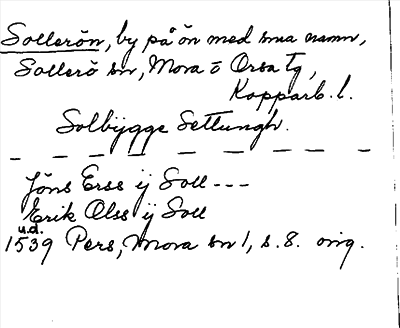 Sollerön, by på ön med sma namn,
Sollerö sn, Mora o Orsa tg,
Kopparb. l.
Solbÿgge Settungh.
Jöns Erss ij Soll ---
Erik Olss ij Soll
u.d.
1539 Pers, Mora sn 1, s. 8. orig.